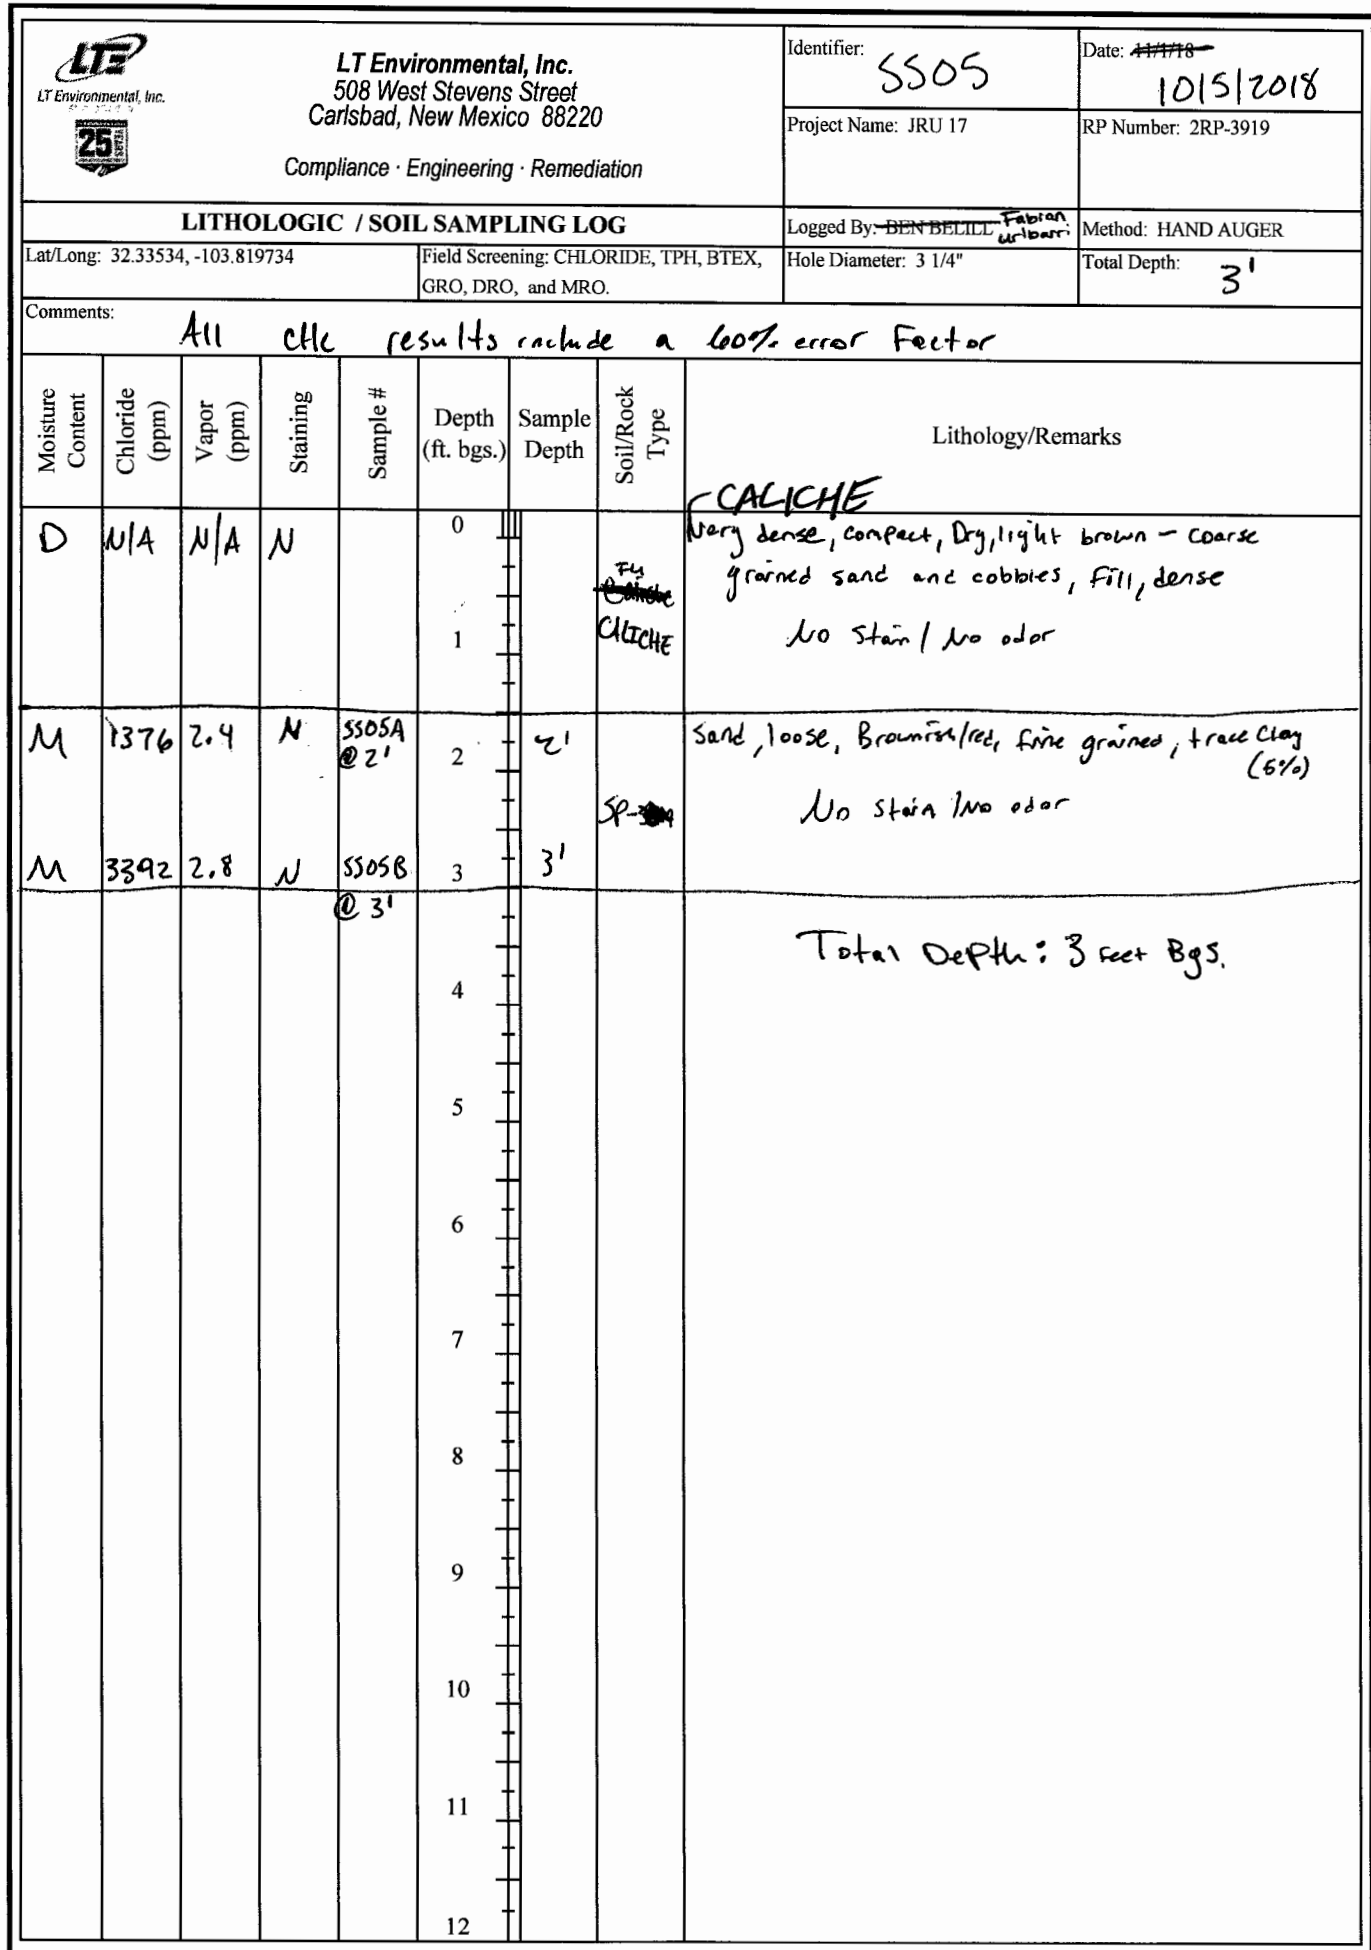 LTE
LT Environmental, Inc.
25 YEARS
LT Environmental, Inc.
508 West Stevens Street
Carlsbad, New Mexico 88220
Compliance · Engineering · Remediation
Identifier: SS05
Date: 11/1/18
10/5/2018
Project Name: JRU 17
RP Number: 2RP-3919
LITHOLOGIC / SOIL SAMPLING LOG
Logged By: BEN BELILL Fabian Uribarri
Method: HAND AUGER
Lat/Long: 32.33534, -103.819734
Field Screening: CHLORIDE, TPH, BTEX,
GRO, DRO, and MRO.
Hole Diameter: 3 1/4"
Total Depth: 3'
Comments:
All results include a 60% error Factor
Moisture Content
Chloride (ppm)
Vapor (ppm)
Staining
Sample #
Depth (ft. bgs.)
Sample Depth
Soil/Rock Type
Lithology/Remarks
CALICHE
D N/A N/A N 0 Very dense, compact, Dry, light brown - coarse
FU grained sand and cobbles, Fill, dense
Caliche
1 CALICHE No Stain / No odor
M 1376 2.4 N SS05A @ 2' 2 2' Sand, loose, Brownish/red, fine grained, trace Clay
(5%)
SP- No Stain / No odor
M 3392 2.8 N SS05B 3 3'
@ 3'
Total Depth: 3 feet Bgs.
4
5
6
7
8
9
10
11
12